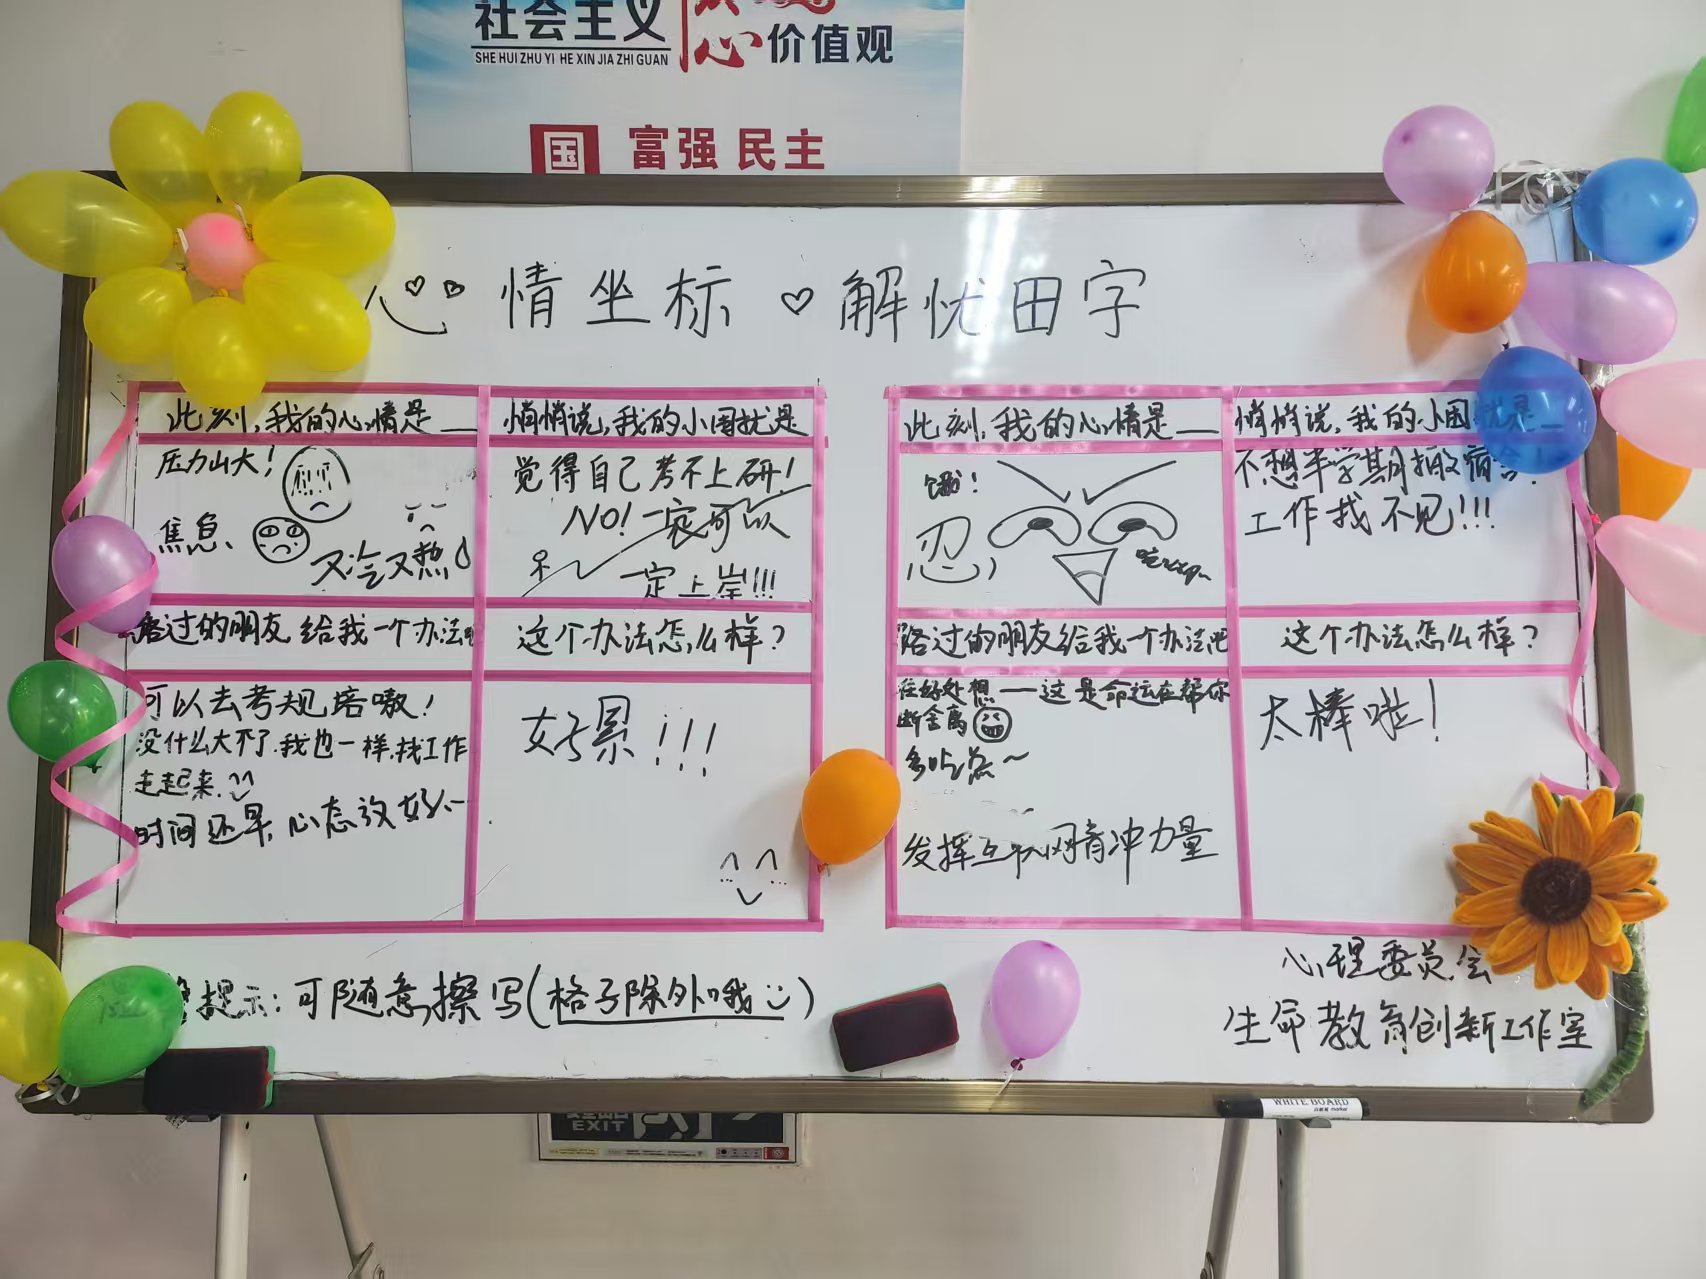 社会主义
价值观
SHE HUI ZHU YI HE XIN JIA ZHI GUAN
国 富强 民主
心情坐标 解忧田字
此刻,我的心情是__
悄悄说,我的小困扰是
压力山大!
焦急、
又冷又热
觉得自己考不上研!
NO!一定可以
一定上岸!!!
路过的朋友给我一个办法吧
这个办法怎么样?
可以去考规培嗷!
没什么大不了.我也一样,找工作
走起来.
时间还早,心态放好
好累!!!
此刻,我的心情是__
悄悄说,我的小困扰是__
饿!
忍
不想半学期搬宿舍!
工作找不见!!!
路过的朋友给我一个办法吧
这个办法怎么样?
往好处想——这是命运在帮你
断舍离
多吃点~
发挥互联网青冲力量
太棒啦!
提示:可随意擦写(格子除外哦)
心理委员会
生命教育创新工作室
EXIT
WHITE BOARD
marker